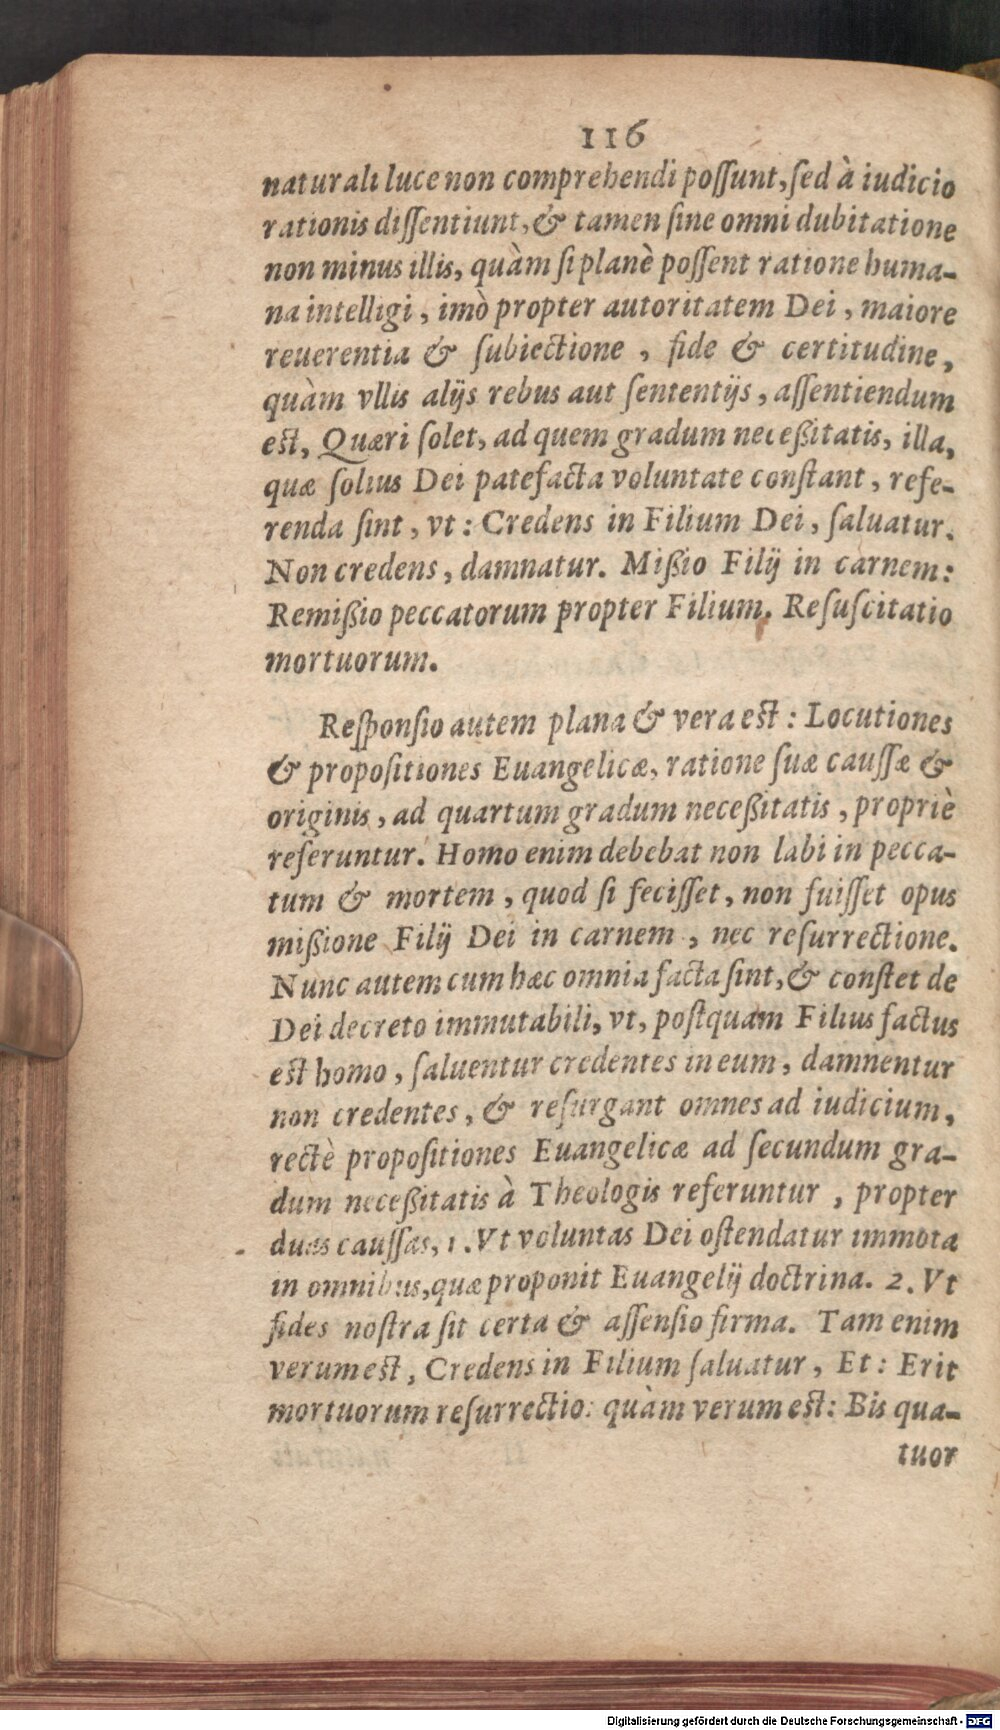 116
naturali luce non comprehendi poſſunt, ſed à iudicio
rationis diſſentiunt, & tamen ſine omni dubitatione
non minus illis, quàm ſi planè poſſent ratione huma-
na intelligi, imò propter autoritatem Dei, maiore
reuerentia & ſubiectione, fide & certitudine,
quàm vllis alijs rebus aut ſententijs, aſſentiendum
eſt, Quæri ſolet, ad quem gradum neceßitatis, illa,
quæ ſolius Dei patefacta voluntate conſtant, refe-
renda ſint, vt: Credens in Filium Dei, ſaluatur.
Non credens, damnatur. Mißio Filij in carnem:
Remißio peccatorum propter Filium. Reſuſcitatio
mortuorum.
Reſponſio autem plana & vera eſt: Locutiones
& propoſitiones Euangelicæ, ratione ſuæ cauſſæ &
originis, ad quartum gradum neceßitatis, propriè
referuntur. Homo enim debebat non labi in pecca-
tum & mortem, quod ſi feciſſet, non fuiſſet opus
mißione Filij Dei in carnem, nec reſurrectione.
Nunc autem cum hæc omnia facta ſint, & conſtet de
Dei decreto immutabili, vt, poſtquam Filius factus
eſt homo, ſaluentur credentes in eum, damnentur
non credentes, & reſurgant omnes ad iudicium,
rectè propoſitiones Euangelicæ ad ſecundum gra-
dum neceßitatis à Theologis referuntur, propter
duas cauſſas, 1. Vt voluntas Dei oſtendatur immota
in omnibus, quæ proponit Euangelij doctrina. 2. Vt
fides noſtra ſit certa & aſſenſio firma. Tam enim
verum eſt, Credens in Filium ſaluatur, Et: Erit
mortuorum reſurrectio: quàm verum eſt: Bis qua-
tuor
Digitalisierung gefördert durch die Deutsche Forschungsgemeinschaft - DFG